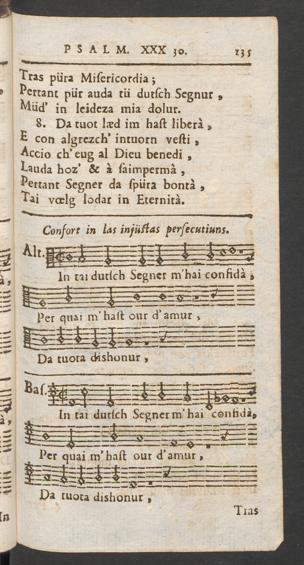 PSALM. XXX 30. 135
Tras püra Misericordia;
Pertant pür auda tü dutsch Segnur,
Müd' in leideza mia dolur.
8. Da tuot læd im hast liberà,
E con algrezch' intuorn vesti,
Accio ch' eug al Dieu benedi,
Lauda hoz' & à saimpermà,
Pertant Segner da spüra bontà,
Tai vœlg lodar in Eternità.
Confort in las injüstas persecutiuns.
Alt.
In tai dutsch Segner m'hai confidà,
Per quai m'hast our d'amur,
Da tuota dishonur,
Bas.
In tai dutsch Segner m'hai confidà,
Per quai m'hast our d'amur,
Da tuota dishonur,
Tras
In